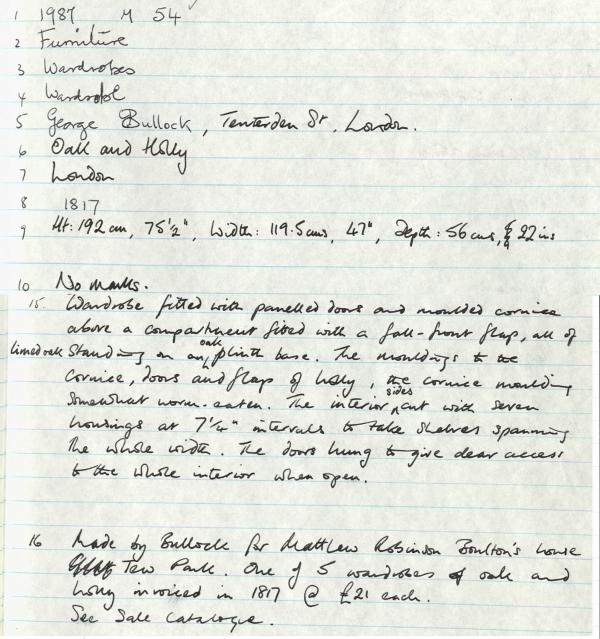 1 1987 M 54
2 Furniture
3 Wardrobes
4 Wardrobe
5 George Bullock, Tenterden St, London.
6 Oak and Holly
7 London
8 1817
9 Ht: 192 cm, 75½", Width: 119.5 cms, 47", Depth: 56 cms, 22 ins
10 No marks.
15. Wardrobe fitted with panelled doors and moulded cornice
above a compartment fitted with a fall-front flap, all of
limed oak standing on an oak plinth base. The mouldings to the
cornice, doors and flap of holly, the cornice moulding
somewhat worm-eaten. The interior sides cut with seven
housings at 7¼" intervals to take shelves spanning
the whole width. The doors hung to give clear access
to the whole interior when open.
16 Made by Bullock for Matthew Robinson Boulton's house
Tew Park. One of 5 wardrobes of oak and
holly invoiced in 1817 @ £21 each.
See Sale Catalogue.